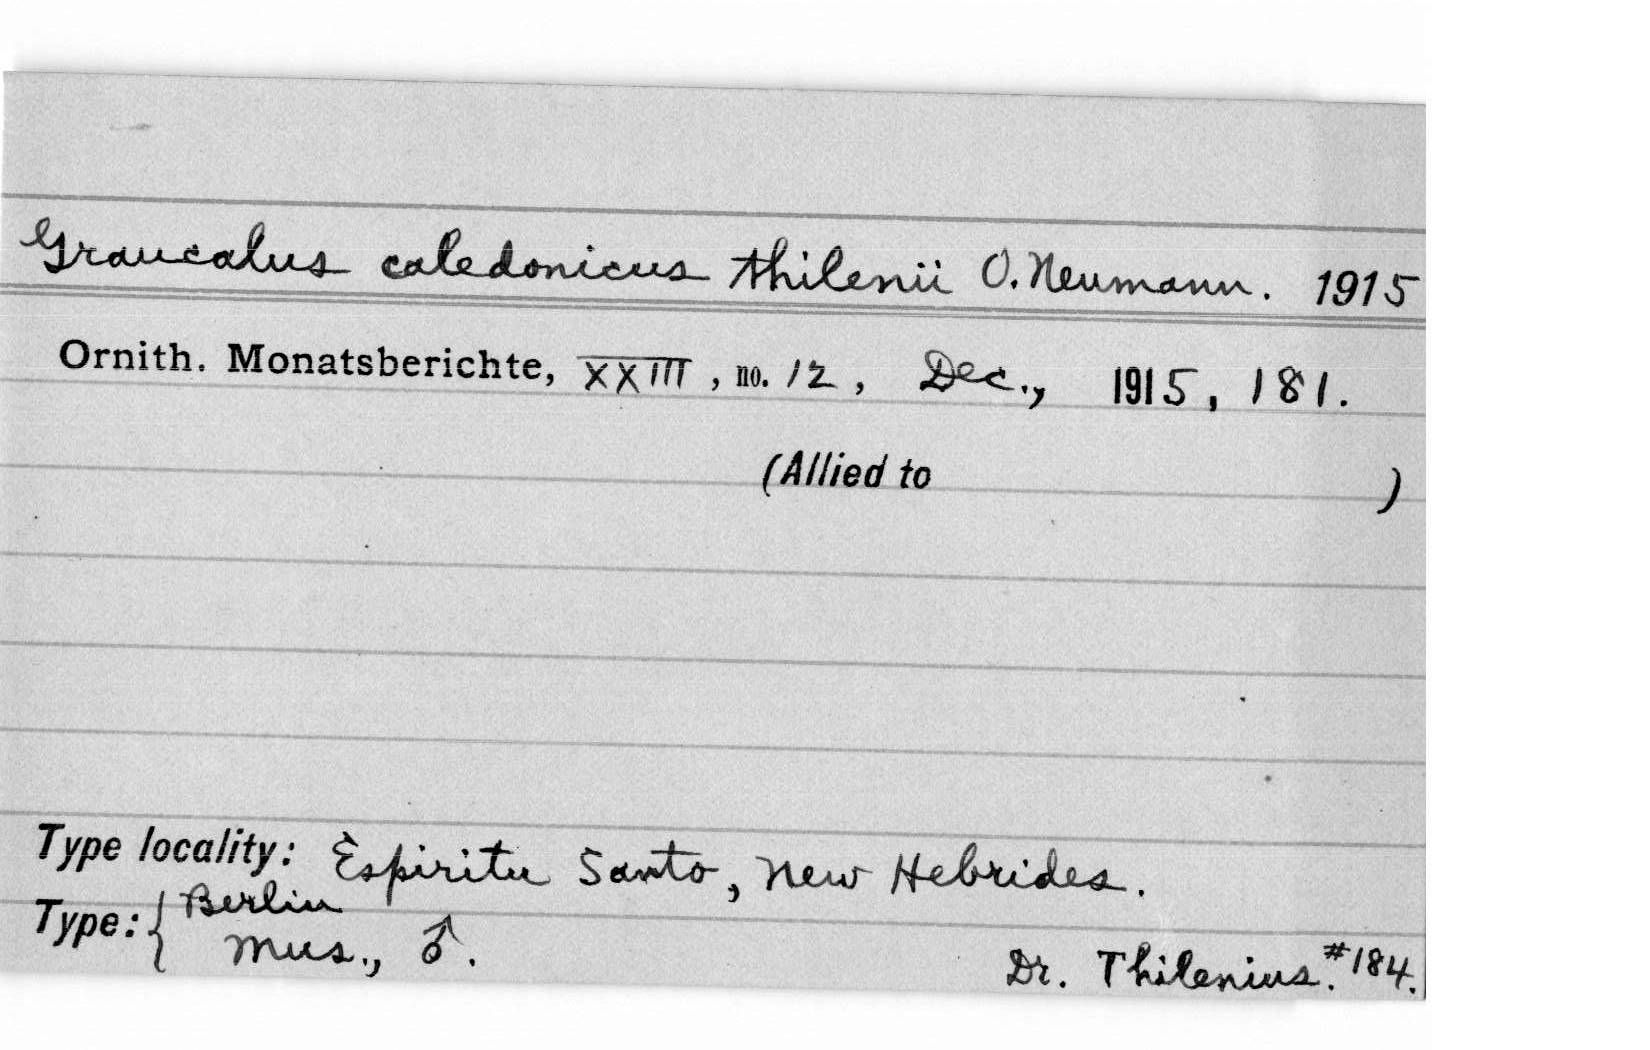 Graucalus caledonicus thilenii O. Neumann. 1915
Ornith. Monatsberichte, XXIII, no. 12, Dec., 1915, 181.
(Allied to )
Type locality: Espiritu Santo, New Hebrides.
Type: { Berlin
Mus., ♂.
Dr. Thilenius. #184.